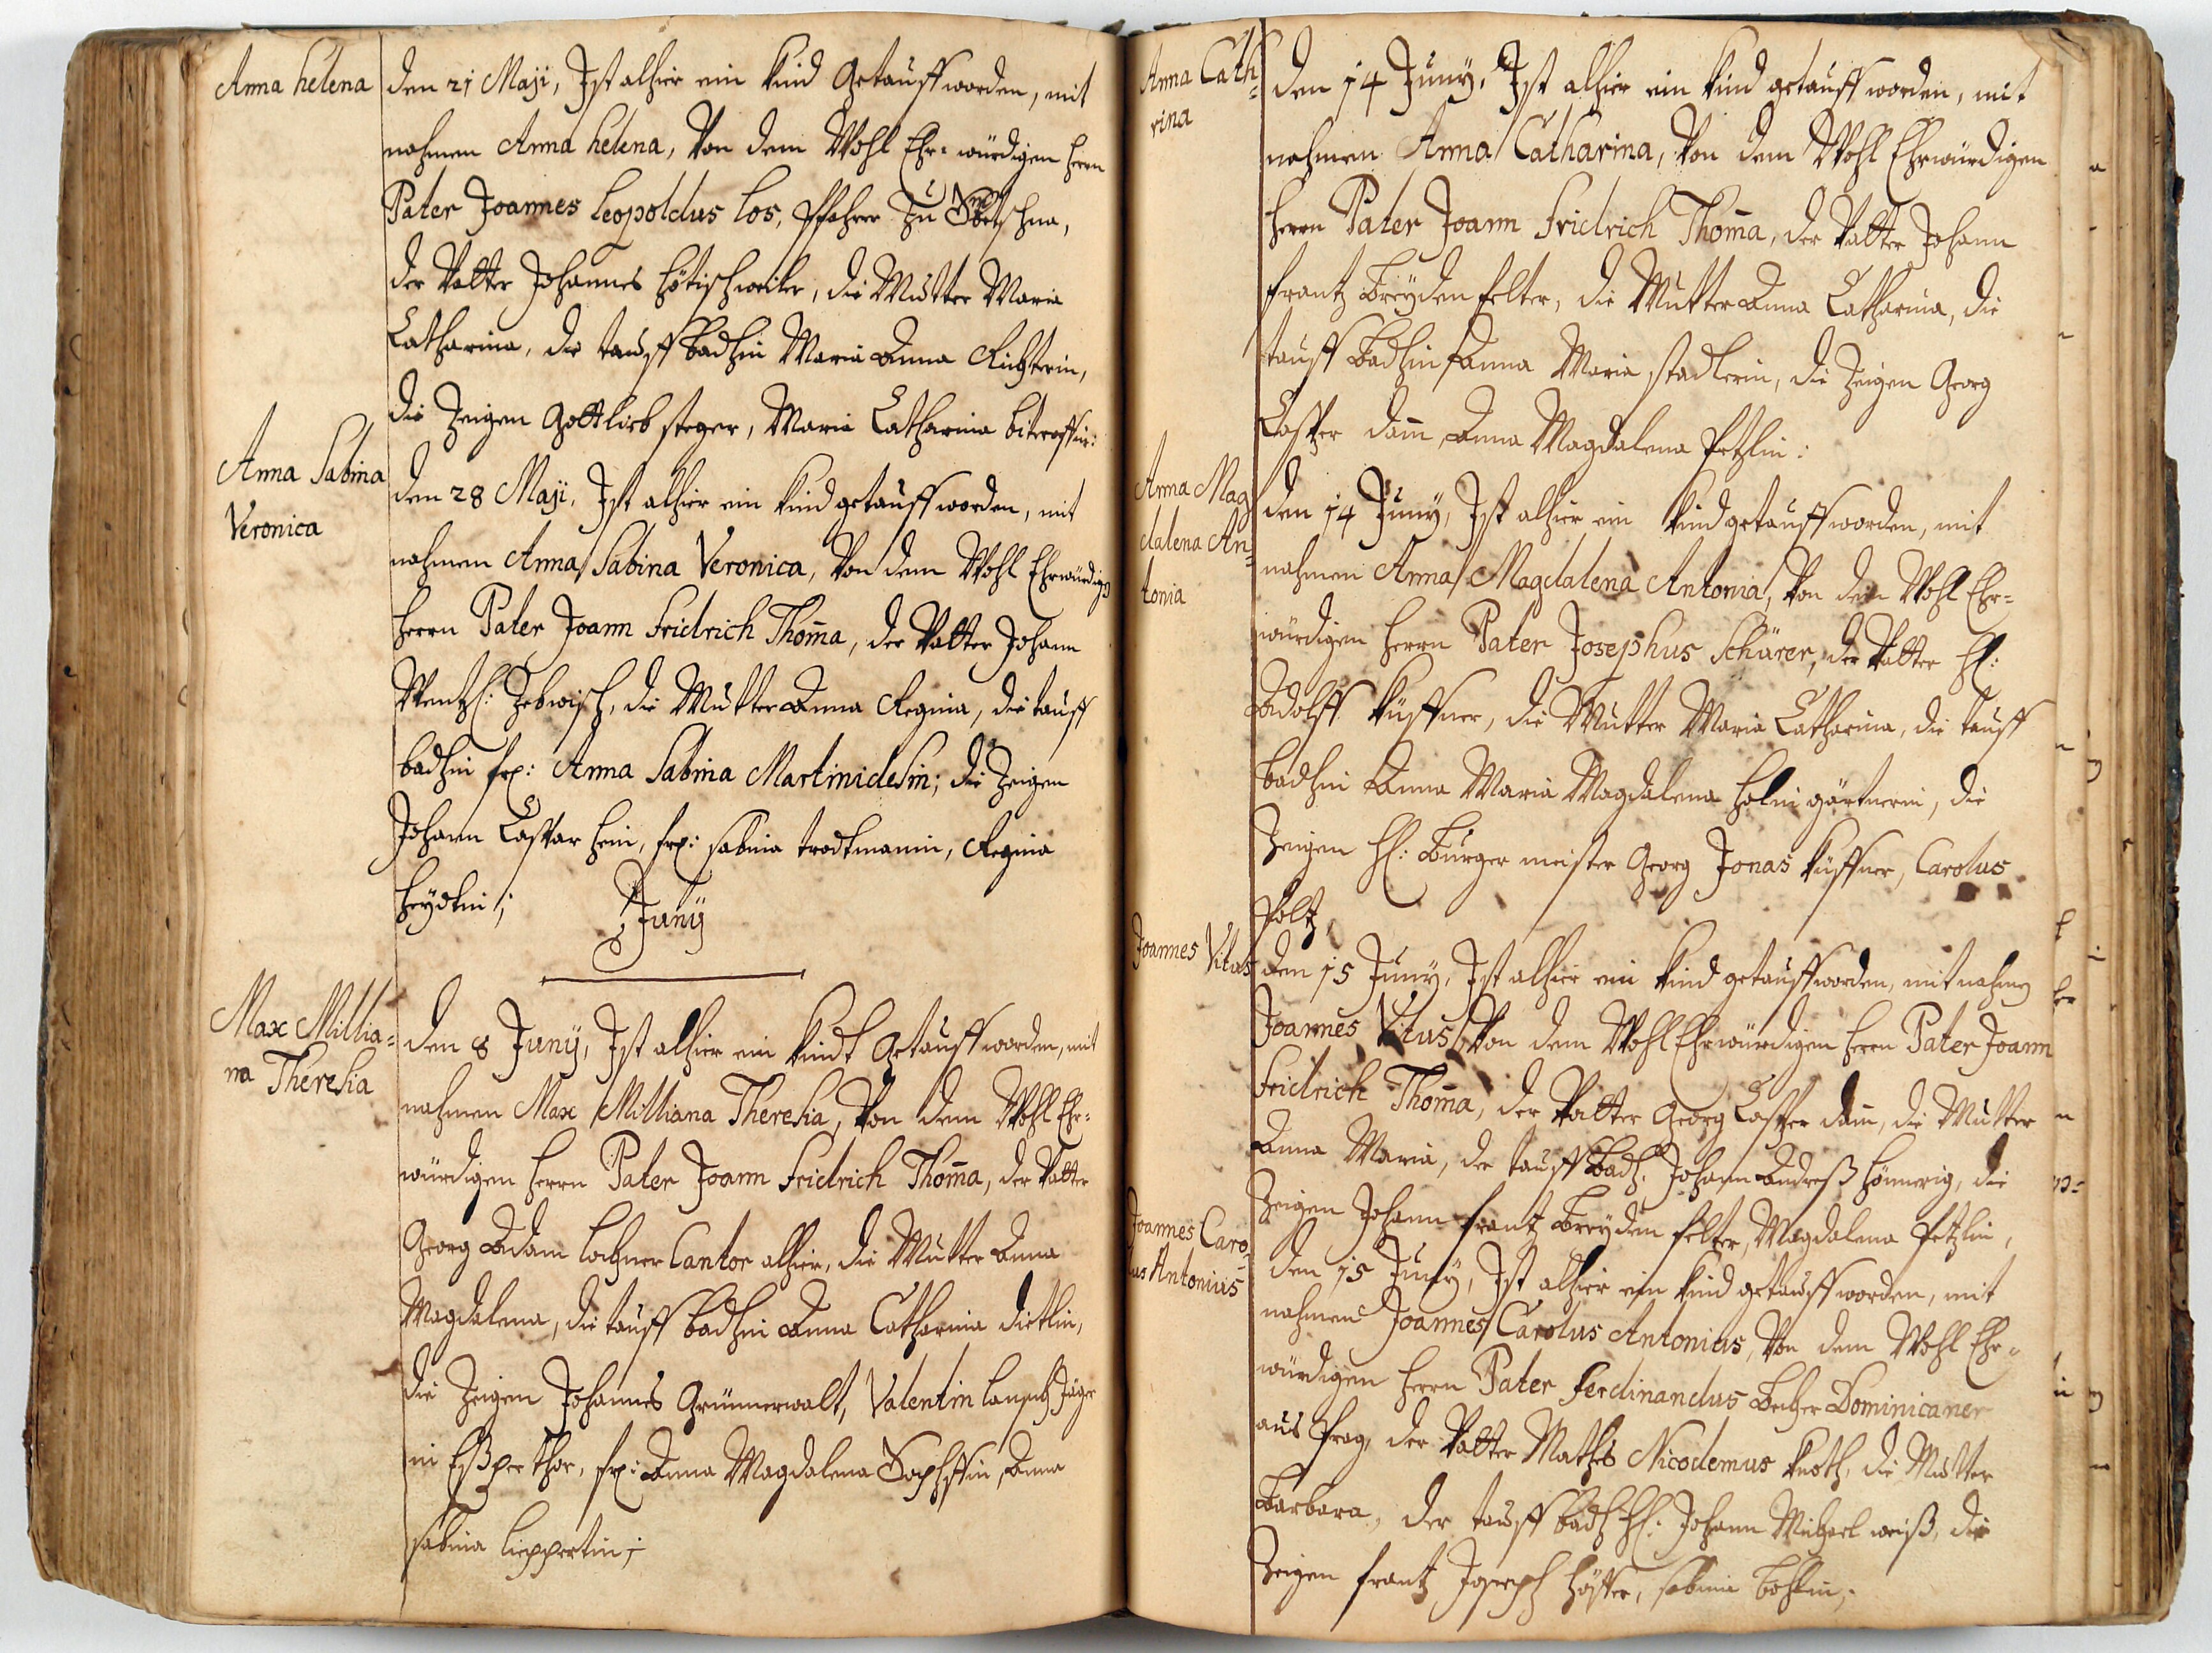 Anna helena
den 21 Maji, Ist alhier ein kind Getaufft worden, mit
nahmen Anna helena, Von dem Wohl Ehr=würdigen Herrn
Pater Joannes Leopoldus Los, Pfahrer Zu
der Vatter Johannes die Mutter Maria
Catharina, die tauff badhin Maria Anna Richterin,
die Zeigen Gottlieb steger, Maria Catharina
Anna Sabina
Veronica
den 28 Maji, Ist alhier ein kind getaufft worden, mit
nahmen Anna Sabina Veronica, Von dem Wohl Ehrwürdigen
Herrn Pater Joann Fridrich Thom̄a, der Vatter Johann
Wentzl: Zebwisch, die Mutter Anna Regina, die tauff
badhin frh: Anna Sabina Martinidesin; die Zeigen
Johann Caspar Hein, frh: Sabina trodtmanin, Regina
Heydtin;
Juny
Max Millia=
na Theresia
den 8 Juny, Ist alhier ein kindt Getaufft worden, mit
nahmen Max Milliana Theresia, Von dem Wohl Ehr=
würdigen Herrn Pater Joann Fridrich Thom̄a, der Vatter
Georg Adam Lochner Cantor alhier, die Mutter Anna
Magdalena, die tauff badhin Anna Catharina dietlin,
die Zeigen Johannes Grünnerwalt, Valentin Jäger
in frh: Anna Magdalena Anna
Sabina Lieppertin;
Anna Cath=
rina
den 14 Juny, Ist alhier ein kind getaufft worden, mit
nahmen Anna Catharina, Von dem Wohl Ehrwürdigen
Herrn Pater Joann Fridrich Thom̄a, der Vatter Johann
Frantz Breyden felter, die Mutter Anna Catharina, die
tauff Badhin Anna Maria stadlerin, die Zeigen Georg
Casper dam̄, Anna Magdalena Petzlin:
Anna Mag
dalena An=
tonia
den 14 Juny, Ist alhier ein kind getaufft worden, mit
nahmen Anna Magdalena Antonia, Von dem Wohl Ehr=
würdigen Herrn Pater Josephus Schürer, der Vatter Hl:
Adolff küffner, die Mutter Maria Catharina, die tauff
badhin Anna Maria Magdalena gärtnerin, die
Zeigen Hl: Bürger meister Georg Jonas küffner, Carolus
Poltz,
Joannes Vitus
den 15 Juny, Ist alhier ein kind getaufft worden, mit nahmen
Joannes Vitus, Von dem Wohl Ehrwürdigen Herrn Pater Joann
Fridrich Thom̄a, der Vatter Georg Casper dam̄, die Mutter
Anna Maria, der tauff Badh: Johann Andreß Hönnerig, die
Zeigen Johann Frantz Breyden felter, Magdalena Petzlin,
Joannes Caro=
lus Antonius
den 15 Juny, Ist alhier ein kind getaufft worden, mit
nahmen Joannes Carolus Antonius, Von dem Wohl Ehr=
würdigen Herrn Pater Ferdinandus Becher Dominicaner
aus Prag, der Vatter Mathes Nicodemus knoth, die Mutter
Barbara, der tauff badh Hl: Johann Michael weiß, die
Zeigen Frantz Joseph Sabina